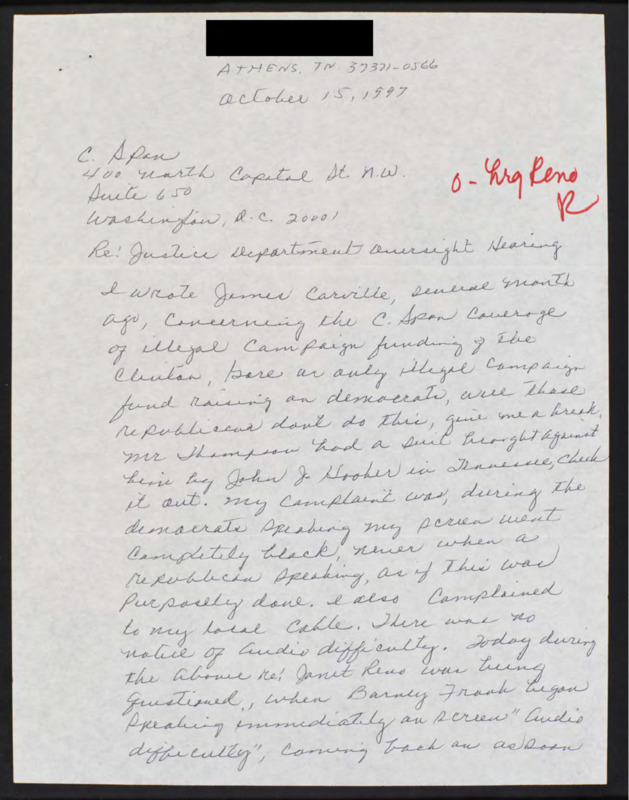 ATHENS, TN 37371-0566
October 15, 1997
C. Span
400 North Capital St. N.W.
Suite 650
Washington, D.C. 20001
O - hrg Reno
R
Re: Justice Department Oversight Hearing
I wrote James Carville, several month
ago, concerning the C. Span Coverage
of illegal campaign funding of the
Clinton, Gore or only illegal campaign
fund raising on democrats, well those
republicans dont do this, give me a break.
Mr Thompson had a suit brought against
him by John J. Hooker in Tennessee, check
it out. My complaint was, during the
democrats speaking my screen went
completely black, never when a
republican speaking, as if this was
purposely done. I also complained
to my local cable. There was no
notice of audio difficulty. Today during
the above re: Janet Reno was being
questioned, when Barney Frank began
speaking immediately on screen "Audio
difficulty", coming back on as soon